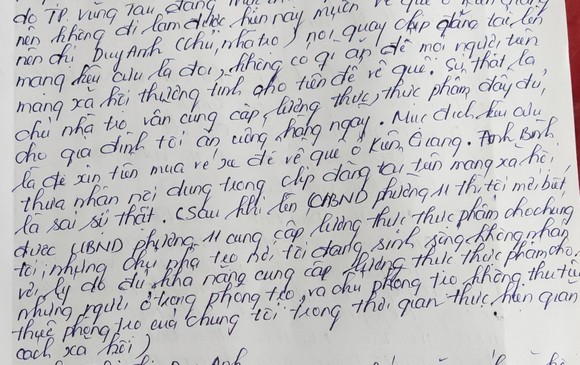 do TP. Vũng Tàu đang
nên không đi làm được hôm nay muốn về quê ở Kiên Giang
nên chị Duy Anh (chủ nhà trọ) nói quay clip đăng tải lên
mạng kêu cứu là đói, không có gì ăn để mọi người trên
mạng xã hội thương tình cho tiền để về quê. Sự thật là
chủ nhà trọ vẫn cung cấp lương thực, thực phẩm đầy đủ,
cho gia đình tôi ăn uống hằng ngày. Mục đích kêu cứu
là để xin tiền mua vé xe để về quê ở Kiên Giang. Anh Bình
thừa nhận nội dung trong clip đăng tải trên mạng xã hội,
là sai sự thật. (Sau khi lên UBND phường 11 thì tôi mới biết,
được UBND phường 11 cung cấp lương thực thực phẩm cho chúng
tôi, nhưng chủ nhà trọ nơi tôi đang sinh sống không nhận
với lý do đủ khả năng cung cấp lương thực thực phẩm cho
những người ở trong phòng trọ, và chủ phòng trọ không thu tiền
thuê phòng trọ của chúng tôi trong thời gian thực hiện giãn
cách xã hội)
Anh